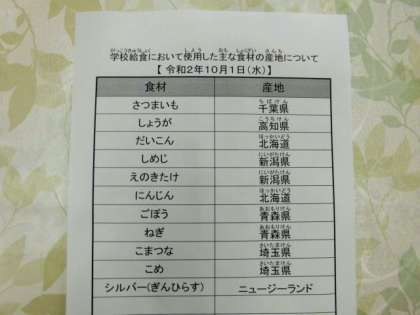 学校給食において使用した主な食材の産地について
【 令和2年10月1日(水)】
食材 産地
さつまいも 千葉県
しょうが 高知県
だいこん 北海道
しめじ 新潟県
えのきたけ 新潟県
にんじん 北海道
ごぼう 青森県
ねぎ 青森県
こまつな 埼玉県
こめ 埼玉県
シルバー(ぎんひらす) ニュージーランド